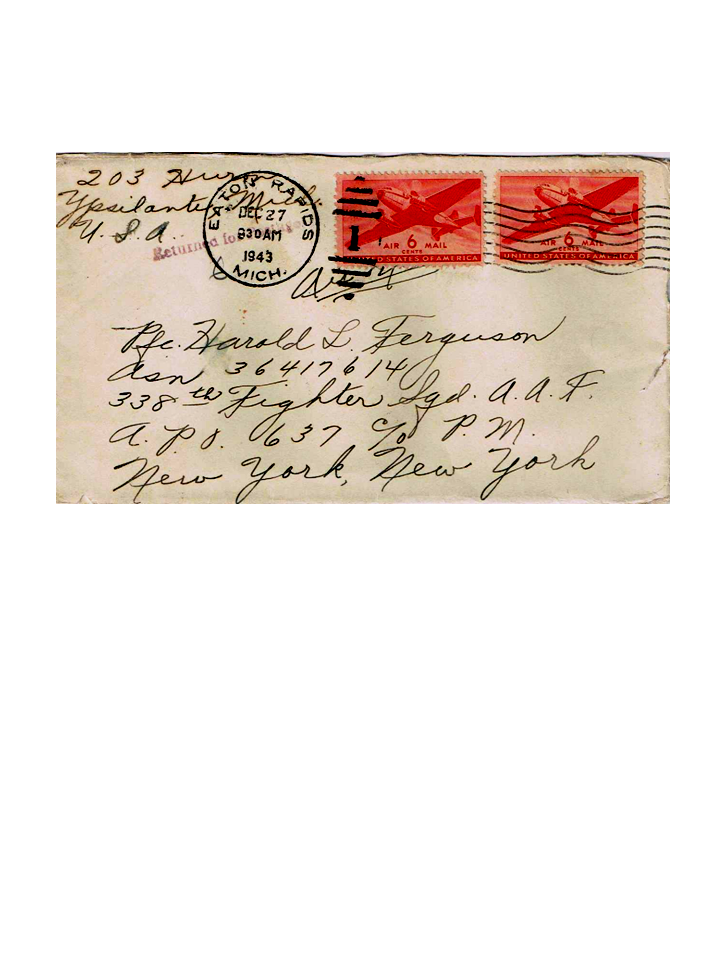 203
Ypsilanti Mich.
U. S. A.
Returned for
EATON RAPIDS
DEC 27
830AM
1943
MICH.
1
AIR 6 MAIL
CENTS
UNITED STATES OF AMERICA
AIR 6 MAIL
CENTS
UNITED STATES OF AMERICA
Pfc. Harold L. Ferguson
Asn 36417614
338th Fighter Sqd. A. A. F.
A. P. O. 637 c/o P. M.
New York, New York